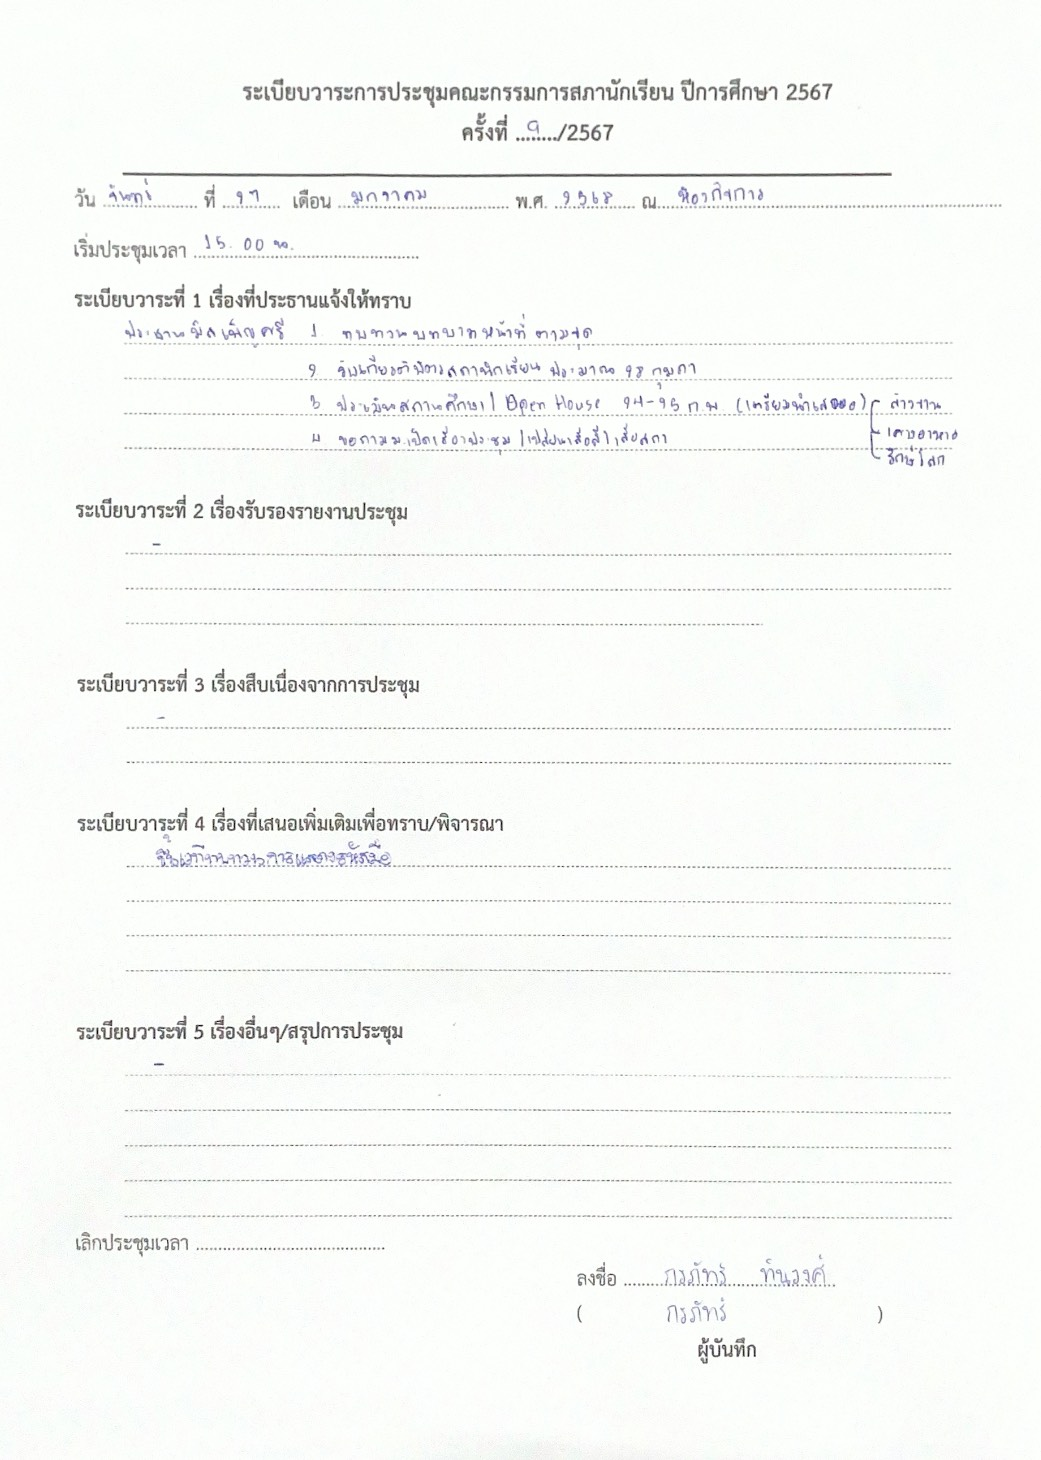 ระเบียบวาระการประชุมคณะกรรมการสภานักเรียน ปีการศึกษา 2567
ครั้งที่ ...9.../2567
วัน จันทร์ ที่ ๒๗ เดือน มกราคม พ.ศ. ๒๕๖๘ ณ ห้องกิจการ
เริ่มประชุมเวลา 15.00 น.
ระเบียบวาระที่ 1 เรื่องที่ประธานแจ้งให้ทราบ
ประธานมิสเพ็ญศรี 1 ทบทวนบทบาทหน้าที่ ตามชุด
๒ รับเกียรติบัตรสภานักเรียน ประมาณ ๒๘ กุมภา
3 ประเมินสถานศึกษา / Open House ๒๔-๒๕ ก.พ. (เตรียมนำเสนอ) สำรวจ
4 ขอถามม.เปิดเรื่องประชุม /เปลี่ยนเสื้อสี / เสื้อสภา
รักษ์โลก
ระเบียบวาระที่ 2 เรื่องรับรองรายงานประชุม
-
ระเบียบวาระที่ 3 เรื่องสืบเนื่องจากการประชุม
-
ระเบียบวาระที่ 4 เรื่องที่เสนอเพิ่มเติมเพื่อทราบ/พิจารณา
ระเบียบวาระที่ 5 เรื่องอื่นๆ/สรุปการประชุม
-
เลิกประชุมเวลา
ลงชื่อ กรภัทร์ ทันวงศ์
( กรภัทร์ )
ผู้บันทึก